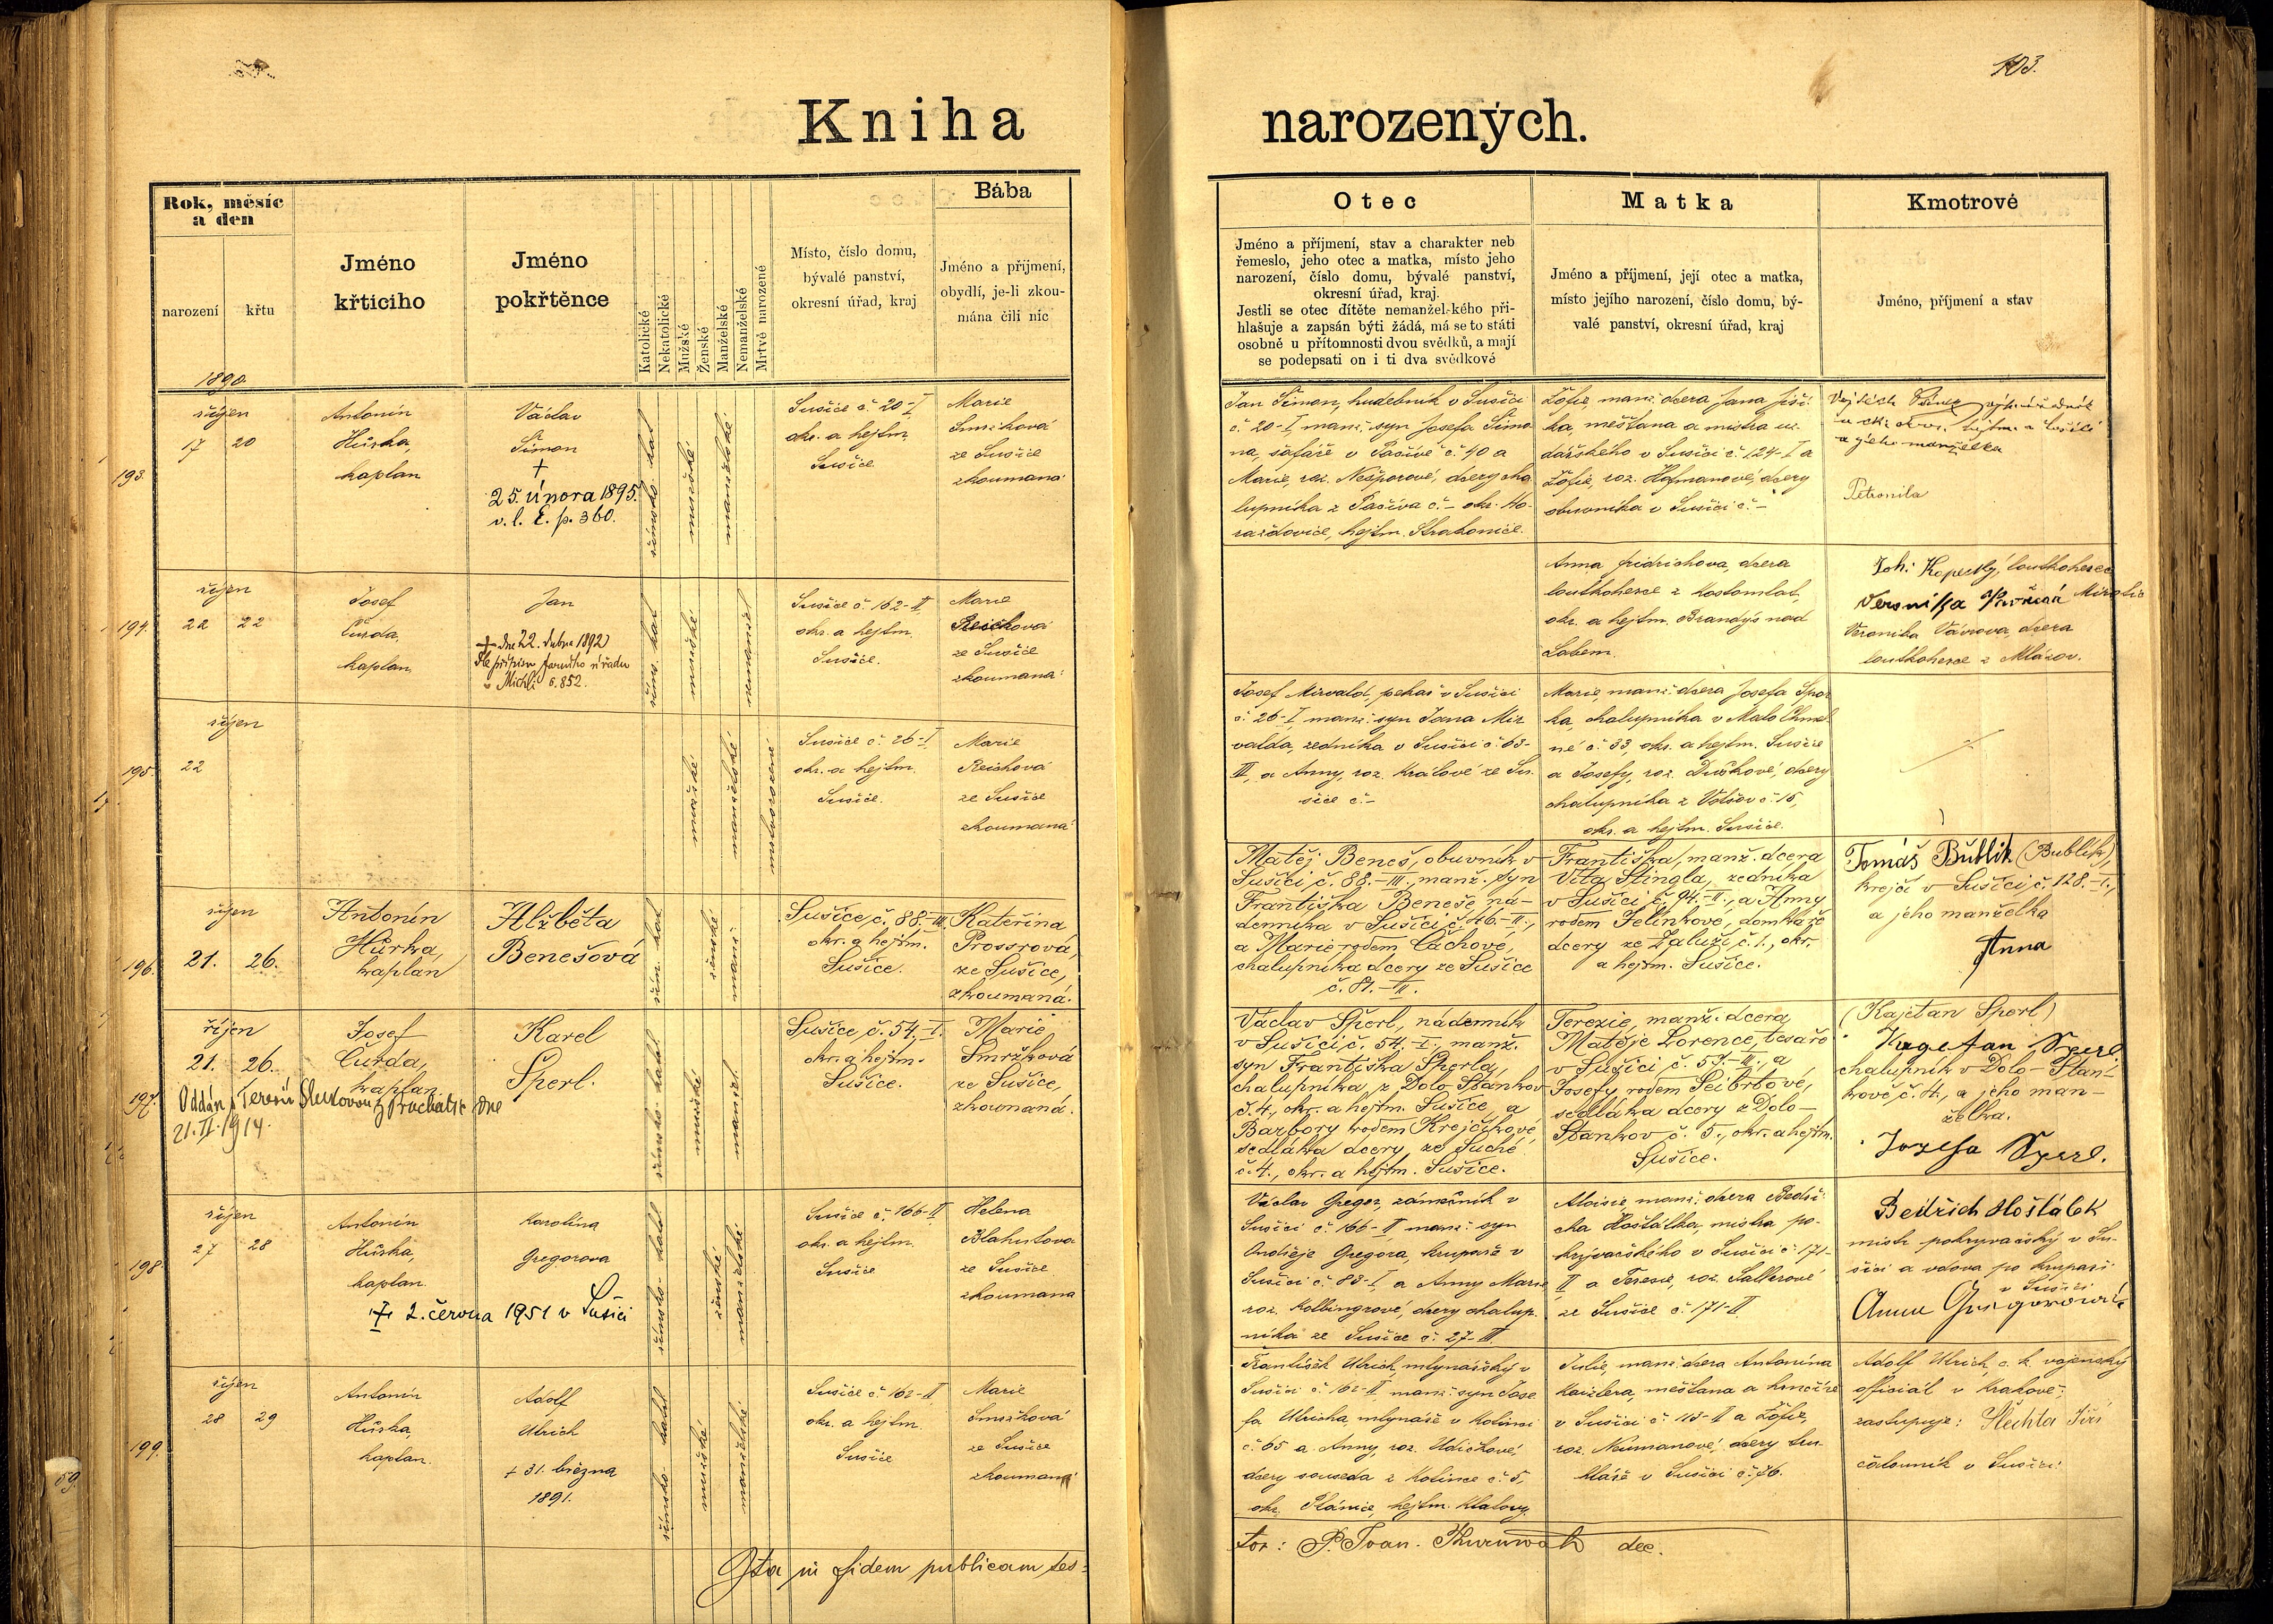 103.
Kniha narozených.
Rok, měsíc
a den
narození
křtu
Jméno
křtícího
Jméno
pokřtěnce
Katolické
Nekatolické
Mužské
Ženské
Manželské
Nemanželské
Mrtvě narozené
Místo, číslo domu,
bývalé panství,
okresní úřad, kraj
Bába
Jméno a příjmení,
obydlí, je-li zkou-
mána čili nic
Otec
Jméno a příjmení, stav a charakter neb
řemeslo, jeho otec a matka, místo jeho
narození, číslo domu, bývalé panství,
okresní úřad, kraj.
Jestli se otec dítěte nemanžel-kého při-
hlašuje a zapsán býti žádá, má se to státi
osobně u přítomnosti dvou svědků, a mají
se podepsati on i ti dva svědkové
Matka
Jméno a příjmení, její otec a matka,
místo jejího narození, číslo domu, bý-
valé panství, okresní úřad, kraj
Kmotrové
Jméno, příjmení a stav
1890.
193.
říjen
17 20
Antonín
Hůrka,
kaplan
Václav
Šimon
+
25. února 1895.
v. l. E. p. 360.
římsko-kat.
mužské
manželské
Sušice č. 20-I
okr. a hejtm.
Sušice
Marie
Smržková
ze Sušice
zkoumaná
Jan Šimon, hudebník v Sušici
č. 20-I, manž. syn Josefa Šimo-
na, šafáře v Pačivě č. 40 a
Marie, roz. Nešporové, dcery cha-
lupníka z Pačiva č.- okr. Ho-
ražďovice, hejtm. Strakonice.
Žofie, manž. dcera Jana Jiři-
ka, měšťana a mistra uz-
dařského v Sušici č. 124-I a
Žofie, roz. Hofmanové, dcery
obuvníka v Sušici č.-
Vojtěch
a jeho manželka
Petronila
194.
říjen
22 22
Josef
Čurda,
kaplan
Jan
+ dne 22. dubna 1892
dle přípisu farního úřadu
v Michli č. 852.
řím. kat.
mužské
nemanžel.
Sušice č. 162-II
okr. a hejtm.
Sušice.
Marie
Reichová
ze Sušice
zkoumaná
Anna Fridrichova, dcera
loutkoherce z Kostomlat,
okr. a hejtm. Brandýs nad
Labem.
Joh. Kopecký, loutkoherec
Veronika
Veronika Vávrova, dcera
loutkoherce z Mlázov.
195.
říjen
22
mužské
manželské
mrtvorozené
Sušice č. 26-I
okr. a hejtm.
Sušice.
Marie
Reichová
ze Sušice
zkoumaná
Josef Mirvald, pekař v Sušici
č. 26-I, manž. syn Jana Mir-
valda, zedníka v Sušici č. 63-
III, a Anny, roz. Králové ze Su-
šice č.-
Marie, manž. dcera Josefa Špor-
ka, chalupníka v Malo Chmel-
né č. 33, okr. a hejtm. Sušice
a Josefy, roz. Duškové, dcery
chalupníka z Volšov č. 15,
okr. a hejtm. Sušice.
196.
říjen
21. 26.
Antonín
Hůrka,
kaplan
Alžběta
Benešová
řím. kat.
ženské
manž.
Sušice, č. 88.-III.
okr. a hejtm.
Sušice.
Kateřina
Prossrová,
ze Sušice,
zkoumaná.
Matěj Beneš, obuvník v
Sušici, č. 88.-III., manž. syn
Františka Beneše, ná-
denníka v Sušici č. 46.-II.,
a Marie rodem Čáchové,
chalupníka dcery ze Sušice
č. 81.-II.
Františka, manž. dcera
Víta Stingla, zedníka
v Sušici č. 94.-II., a Anny
rodem Jelínkové, domkáře
dcery ze Zaluží, č. 1., okr.
a hejtm. Sušice.
Tomáš Bublik (Bublík),
krejčí v Sušici, č. 128.-I.,
a jeho manželka
Anna
197.
říjen
21. 26.
Josef
Čurda,
kaplan
Karel
Šperl.
Oddán s Terezií z Prachatic dne
21. II. 1914.
římsko-katol.
mužské
manžel.
Sušice č. 54.-I.
okr. a hejtm.
Sušice.
Marie
Smržková
ze Sušice,
zkoumaná.
Václav Šperl, nádenník
v Sušici č. 54.-I., manž.
syn Františka Šperla,
chalupníka, z Dolo-Staňkov
č. 4., okr. a hejtm. Sušice, a
Barbory rodem Krejčíkové,
sedláka dcery ze Suché
č. 4., okr. a hejtm. Sušice.
Terezie, manž. dcera
Matěje Lorence, tesaře
v Sušici č. 57.-III., a
Josefy rodem Seibrtové,
sedláka dcery z Dolo-
Staňkov č. 5., okr. a hejtm.
Sušice.
(Kajetan Šperl)
Kagetan Sperl.
chalupník v Dolo-Staň-
kově č. 4., a jeho man-
želka.
Jozefa Sperl.
198
říjen
27 28
Antonín
Hůrka,
kaplan.
Karolina
Gregorova
+ 2. června 1951 v Sušici
římsko-katol.
ženské
manželské
Sušice č. 166-II
okr. a hejtm.
Sušice
Helena
Blahutova
ze Sušice
zkoumana
Václav Gregor, zámečník v
Sušici č. 166-II manž. syn
Ondřeje Gregora, krupaře v
Sušici č. 83-I, a Anny Marie,
roz. Kolbingrové, dcery chalup-
níka ze Sušice č. 27-III.
Aloisie, manž. dcera Bedři-
cha Hošťálka, mistra po-
krývačského v Sušici č. 171-
II a Terezie, roz. Sallerové
ze Sušice č. 171-II
Bedřich Hošťálek
mistr pokryvačský v Su-
šici a vdova po krupaři
v Sušici
Anna Gregorová
199.
říjen
28 29
Antonín
Hůrka,
kaplan.
Adolf
Ulrich
+ 31. března
1891.
římsko-katol.
mužské
manželské
Sušice č. 162-II
okr. a hejtm.
Sušice
Marie
Smržková
ze Sušice
zkoumaná
František Ulrich, mlynářský v
Sušici č. 162-II manž. syn Jose-
fa Ulricha, mlynáře v Kolinci
č. 65 a Anny, roz. Udičkové,
dcery souseda z Kolince č. 5.
okr. Plánice, hejtm. Klatovy.
Julie, manž. dcera Antonína
Kanzlera, měšťana a hrnčíře
v Sušici č. 113-I a Žofie,
roz. Neumanové, dcery tru-
hláře v Sušici č. 76.
Adolf Ulrich, c. k. vojenský
officiál v Krakově;
zastupuje: Šlechta Jiří
čalouník v Sušici
Ita in fidem publicam tes-
tor: P. Joan. dec.